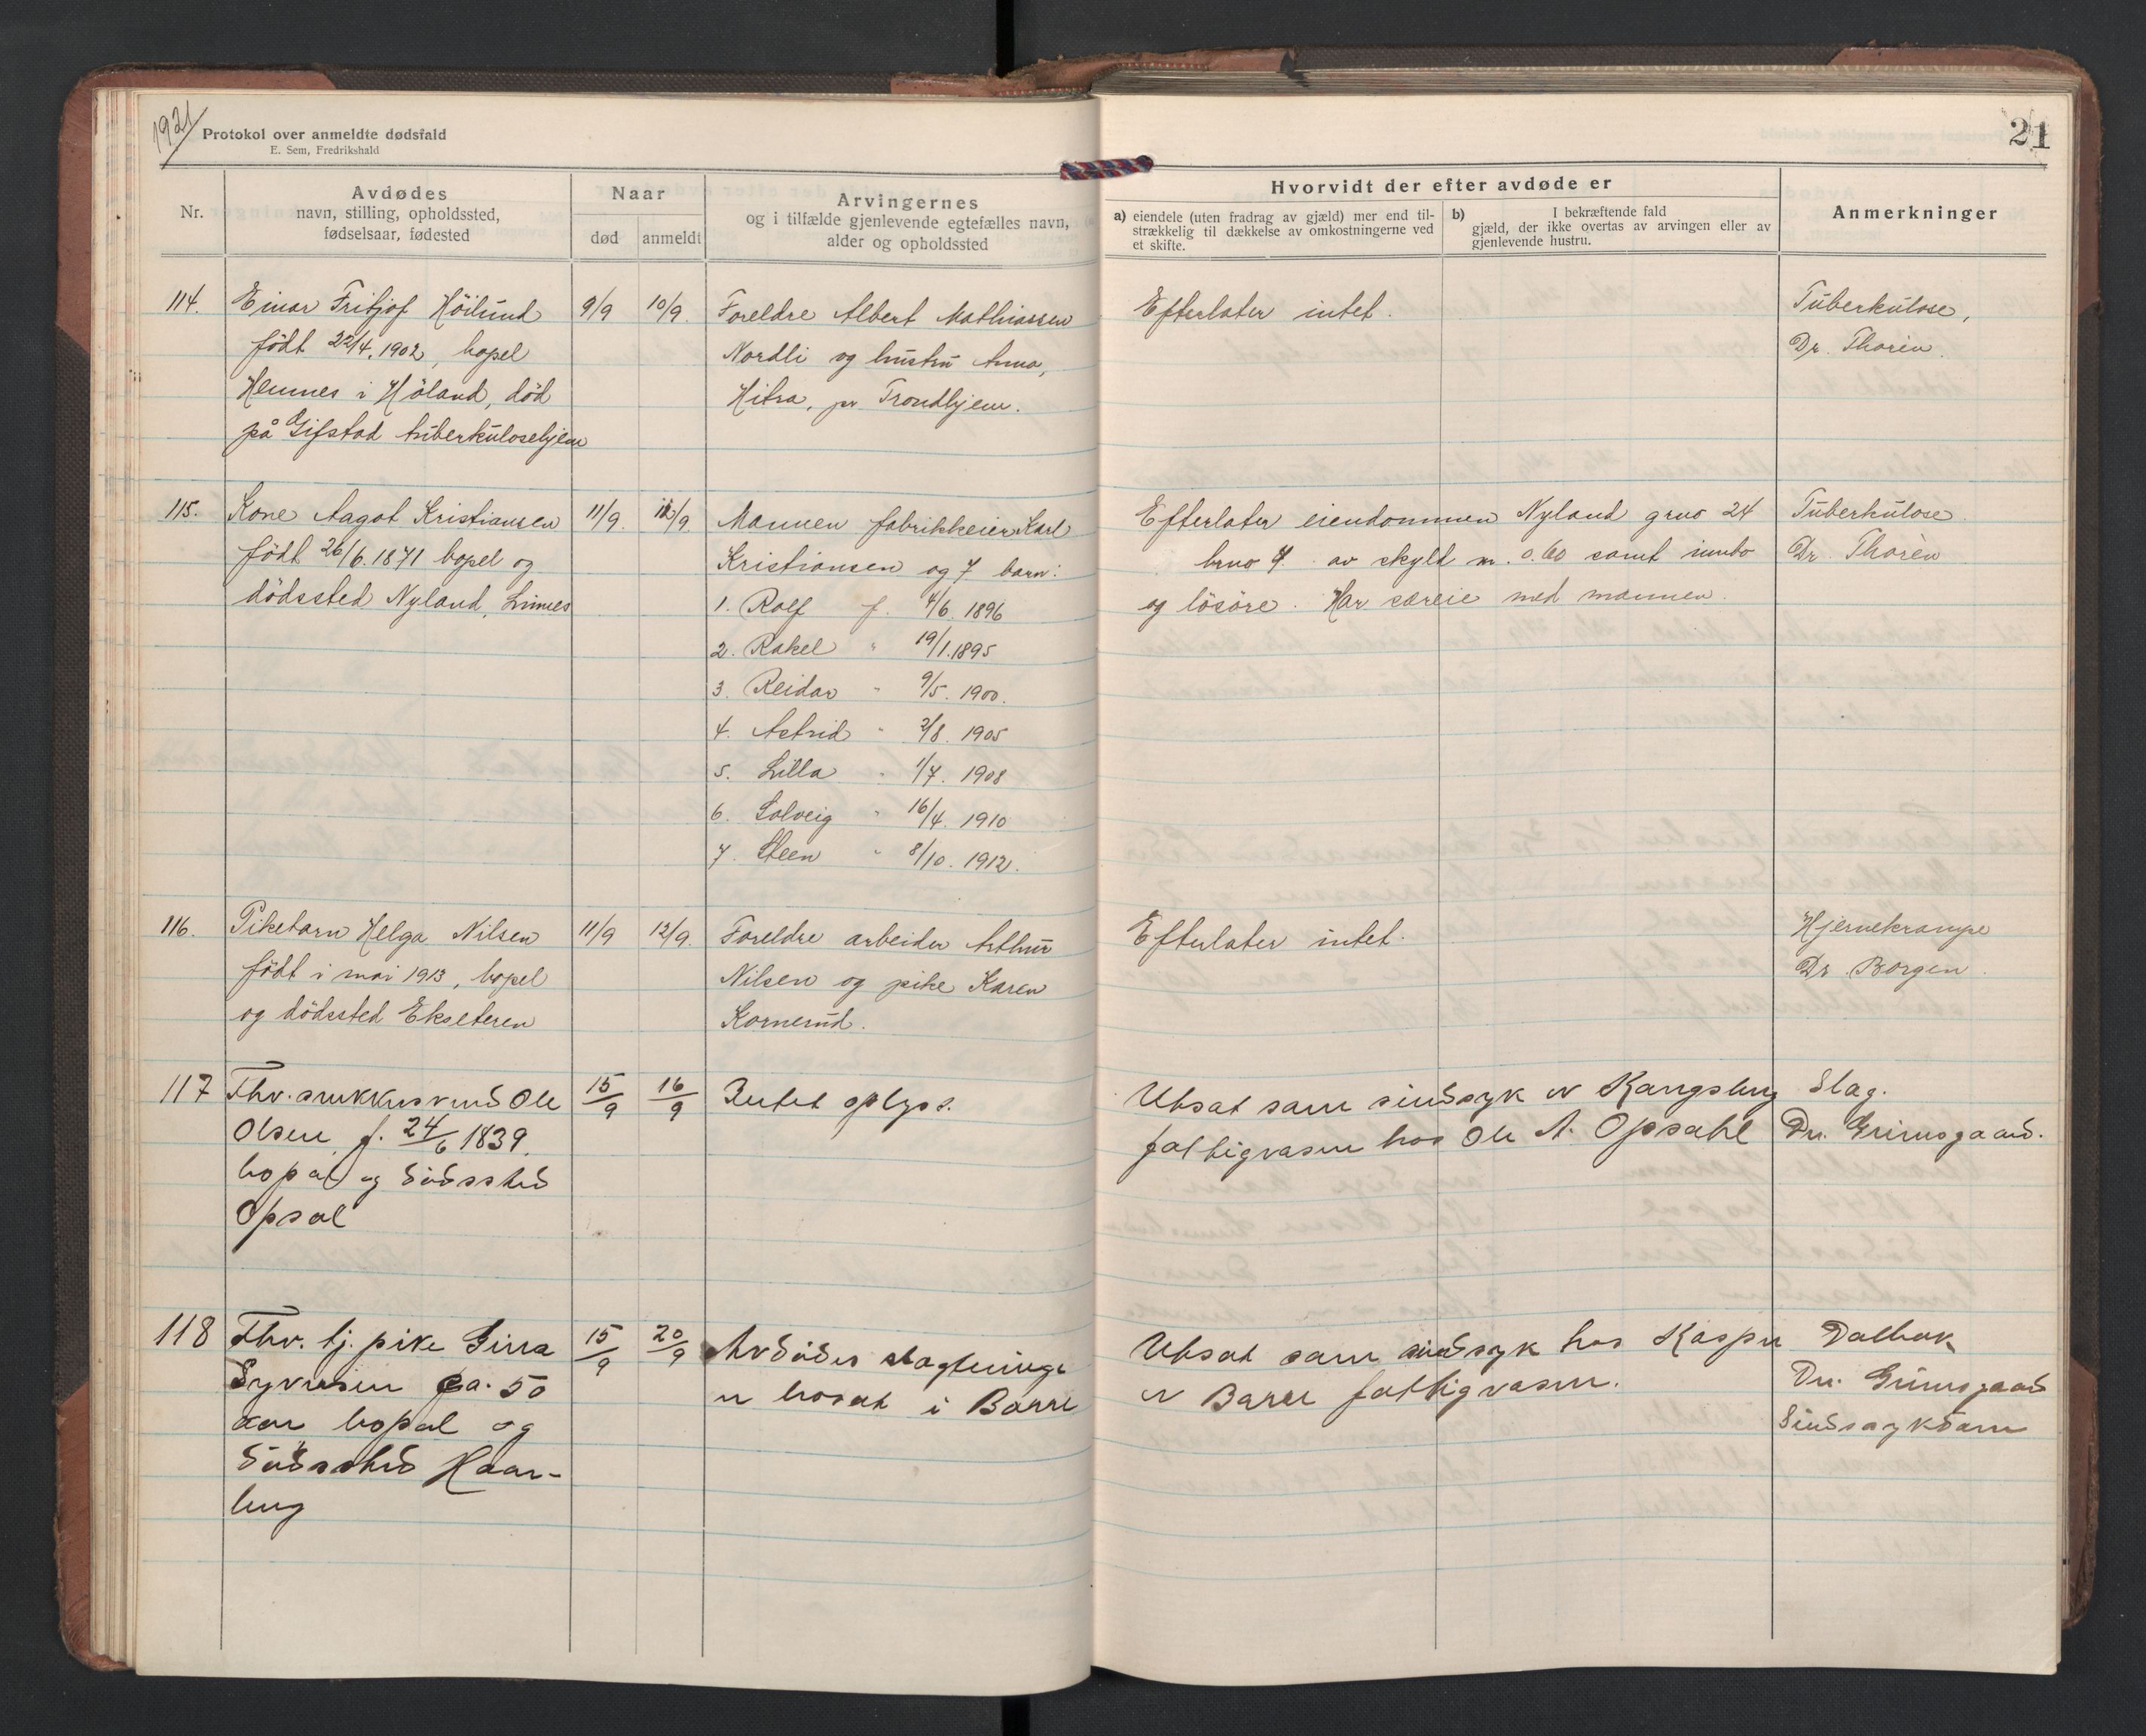 1921
Protokol over anmeldte dødsfald
E. Sem, Fredrikshald
21
Nr.
Avdødes
navn, stilling, opholdssted,
fødselsaar, fødested
Naar
død
anmeldt
Arvingernes
og i tilfælde gjenlevende egtefælles navn,
alder og opholdssted
Hvorvidt der efter avdøde er
a) eiendele (uten fradrag av gjæld) mer end til-
strækkelig til dækkelse av omkostningerne ved
et skifte.
b) I bekræftende fald
gjæld, der ikke overtas av arvingen eller av
gjenlevende hustru.
Anmerkninger
114. Einar Fritjof Höilund 9/9 10/9. Foreldre Albert Mathiassen Efterlater intet. Tuberkulose,
født 22/4. 1902, bopel Nordli og hustru Anna, Dr. Thorén.
Hemnes i Höland, död Hitra, pr Trondhjem.
på Gifstad tuberkulosehjem
115. Kone Aagot Kristiansen 11/9. 12/9 Mannen fabrikkeier Karl Efterlater eiendommen Nyland gruo 24 Tuberkulose
født 26/6. 1871 bopel og Kristiansen og 7 barn: bruo 4 av skyld m. 0.60 samt innbo Dr. Thorén
dödssted Nyland, Linnes 1. Rolf f. 4/6. 1896 og lösöre. Har særeie med mannen.
2. Rakel " 19/1. 1895
3. Reidar " 9/5. 1900.
4. Astrid " 2/8. 1905
5. Lilla " 1/7. 1908
6. Solveig " 16/4. 1910
7. Steen " 8/10. 1912.
116. Pikebarn Helga Nilsen 11/9 12/9. Foreldre arbeider Arthur Efterlater intet. Hjernekrampe
født i mai 1913, bopel Nilsen og pike Karen Dr. Borgen.
og dödssted Ekseteren Kornerud.
117 Fhv. Ole 15/9 16/9 Intet oplyst. Utsat som sindssyk av Kongsberg Slag.
Olsen, f. 24/6 1839. fattigvæsen hos Ole A. Opsahl Dr. Grimsgaard.
bopæl og dödssted
Opsal
118 Fhv. tj. pike Gina 15/9 20/9 Avdödes slagtninge Utsat som sindssyk hos Kasper Dalbak
Syversen ca. 50 er bosat i Borre av Borre fattigvæsen. Dr. Grimsgaard
aar bopæl og Sindssykdom
dödssted Haar-
berg